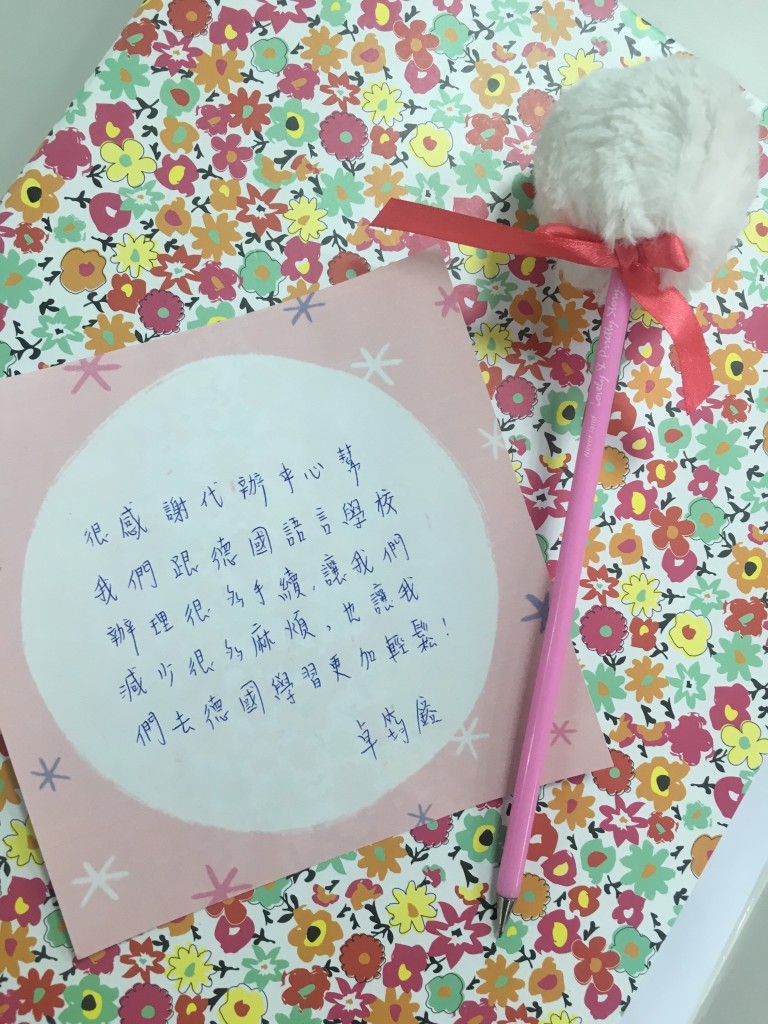 很感謝代辦中心幫
我們跟德國語言學校
辦理很多手續,讓我們
減少很多麻煩,也讓我
們去德國學習更加輕鬆!
卓筠
Lovely & Pretty Story